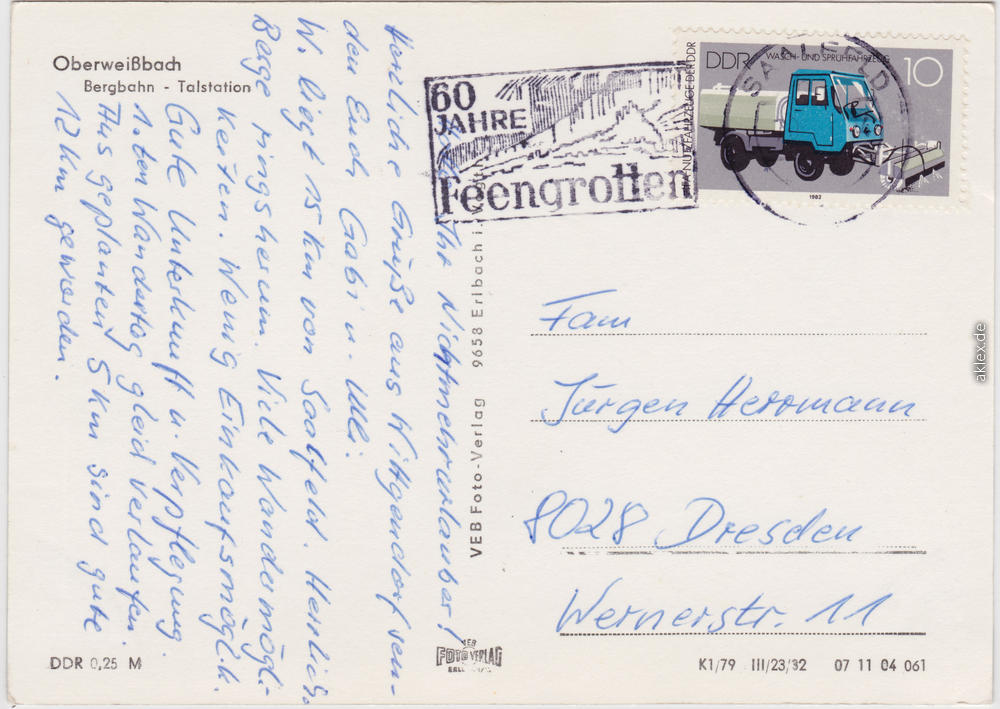 Oberweißbach
Bergbahn - Talstation
60
JAHRE
Feengrotten
SAALFELD
DDR
WASCH- UND SPRÜHFAHRZEUG
10
IFA-NUTZFAHRZEUGE DER DDR
1982
Ihr Nichtmehrurlauber!
Herzliche Grüße aus Wittgendorf sen-
den Euch Gabi u. Ulli.
W. liegt 15 km von Saalfeld. Herrlich.
Berge ringsherum. Viele Wandermögli-
keiten. Wenig Einkaufsmöglk.
Gute Unterkunft u. Verpflegung.
1. ten Wandertag gleich verlaufen.
Aus geplanten 5 km sind gute
12 km geworden.
VEB Foto-Verlag 9658 Erlbach i.
Fam
Jürgen Herrmann
8028 Dresden
Wernerstr. 11
DDR 0,25 M
VEB
FOTO VERLAG
K1/79 III/23/82 07 11 04 061
aklex.de